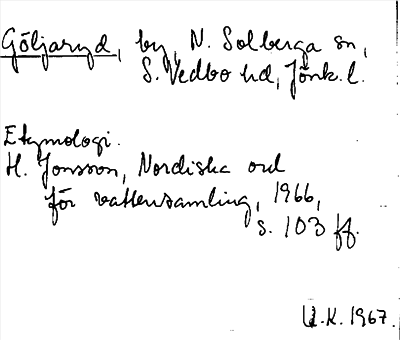 Göljaryd, by, N. Solberga sn,
S. Vedbo hd, Jönk. l.
Etymologi.
H. Jonsson, Nordiska ord
för vattensamling, 1966,
s. 103 ff.
U.K. 1967.